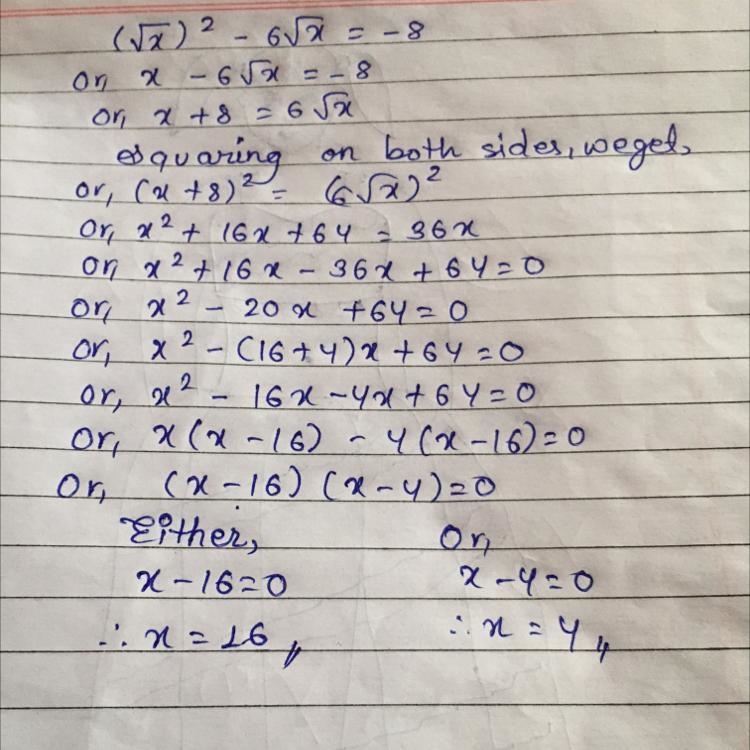 (√x)² - 6√x = -8
Or, x - 6√x = -8
or, x + 8 = 6√x
squaring on both sides, we get,
or, (x + 8)² = (6√x)²
Or, x² + 16x + 64 = 36x
Or, x² + 16x - 36x + 64 = 0
Or, x² - 20x + 64 = 0
Or, x² - (16+4)x + 64 = 0
Or, x² - 16x - 4x + 64 = 0
Or, x(x - 16) - 4(x - 16) = 0
Or, (x - 16) (x - 4) = 0
Either, Or,
x - 16 = 0 x - 4 = 0
∴ x = 16,, ∴ x = 4,,